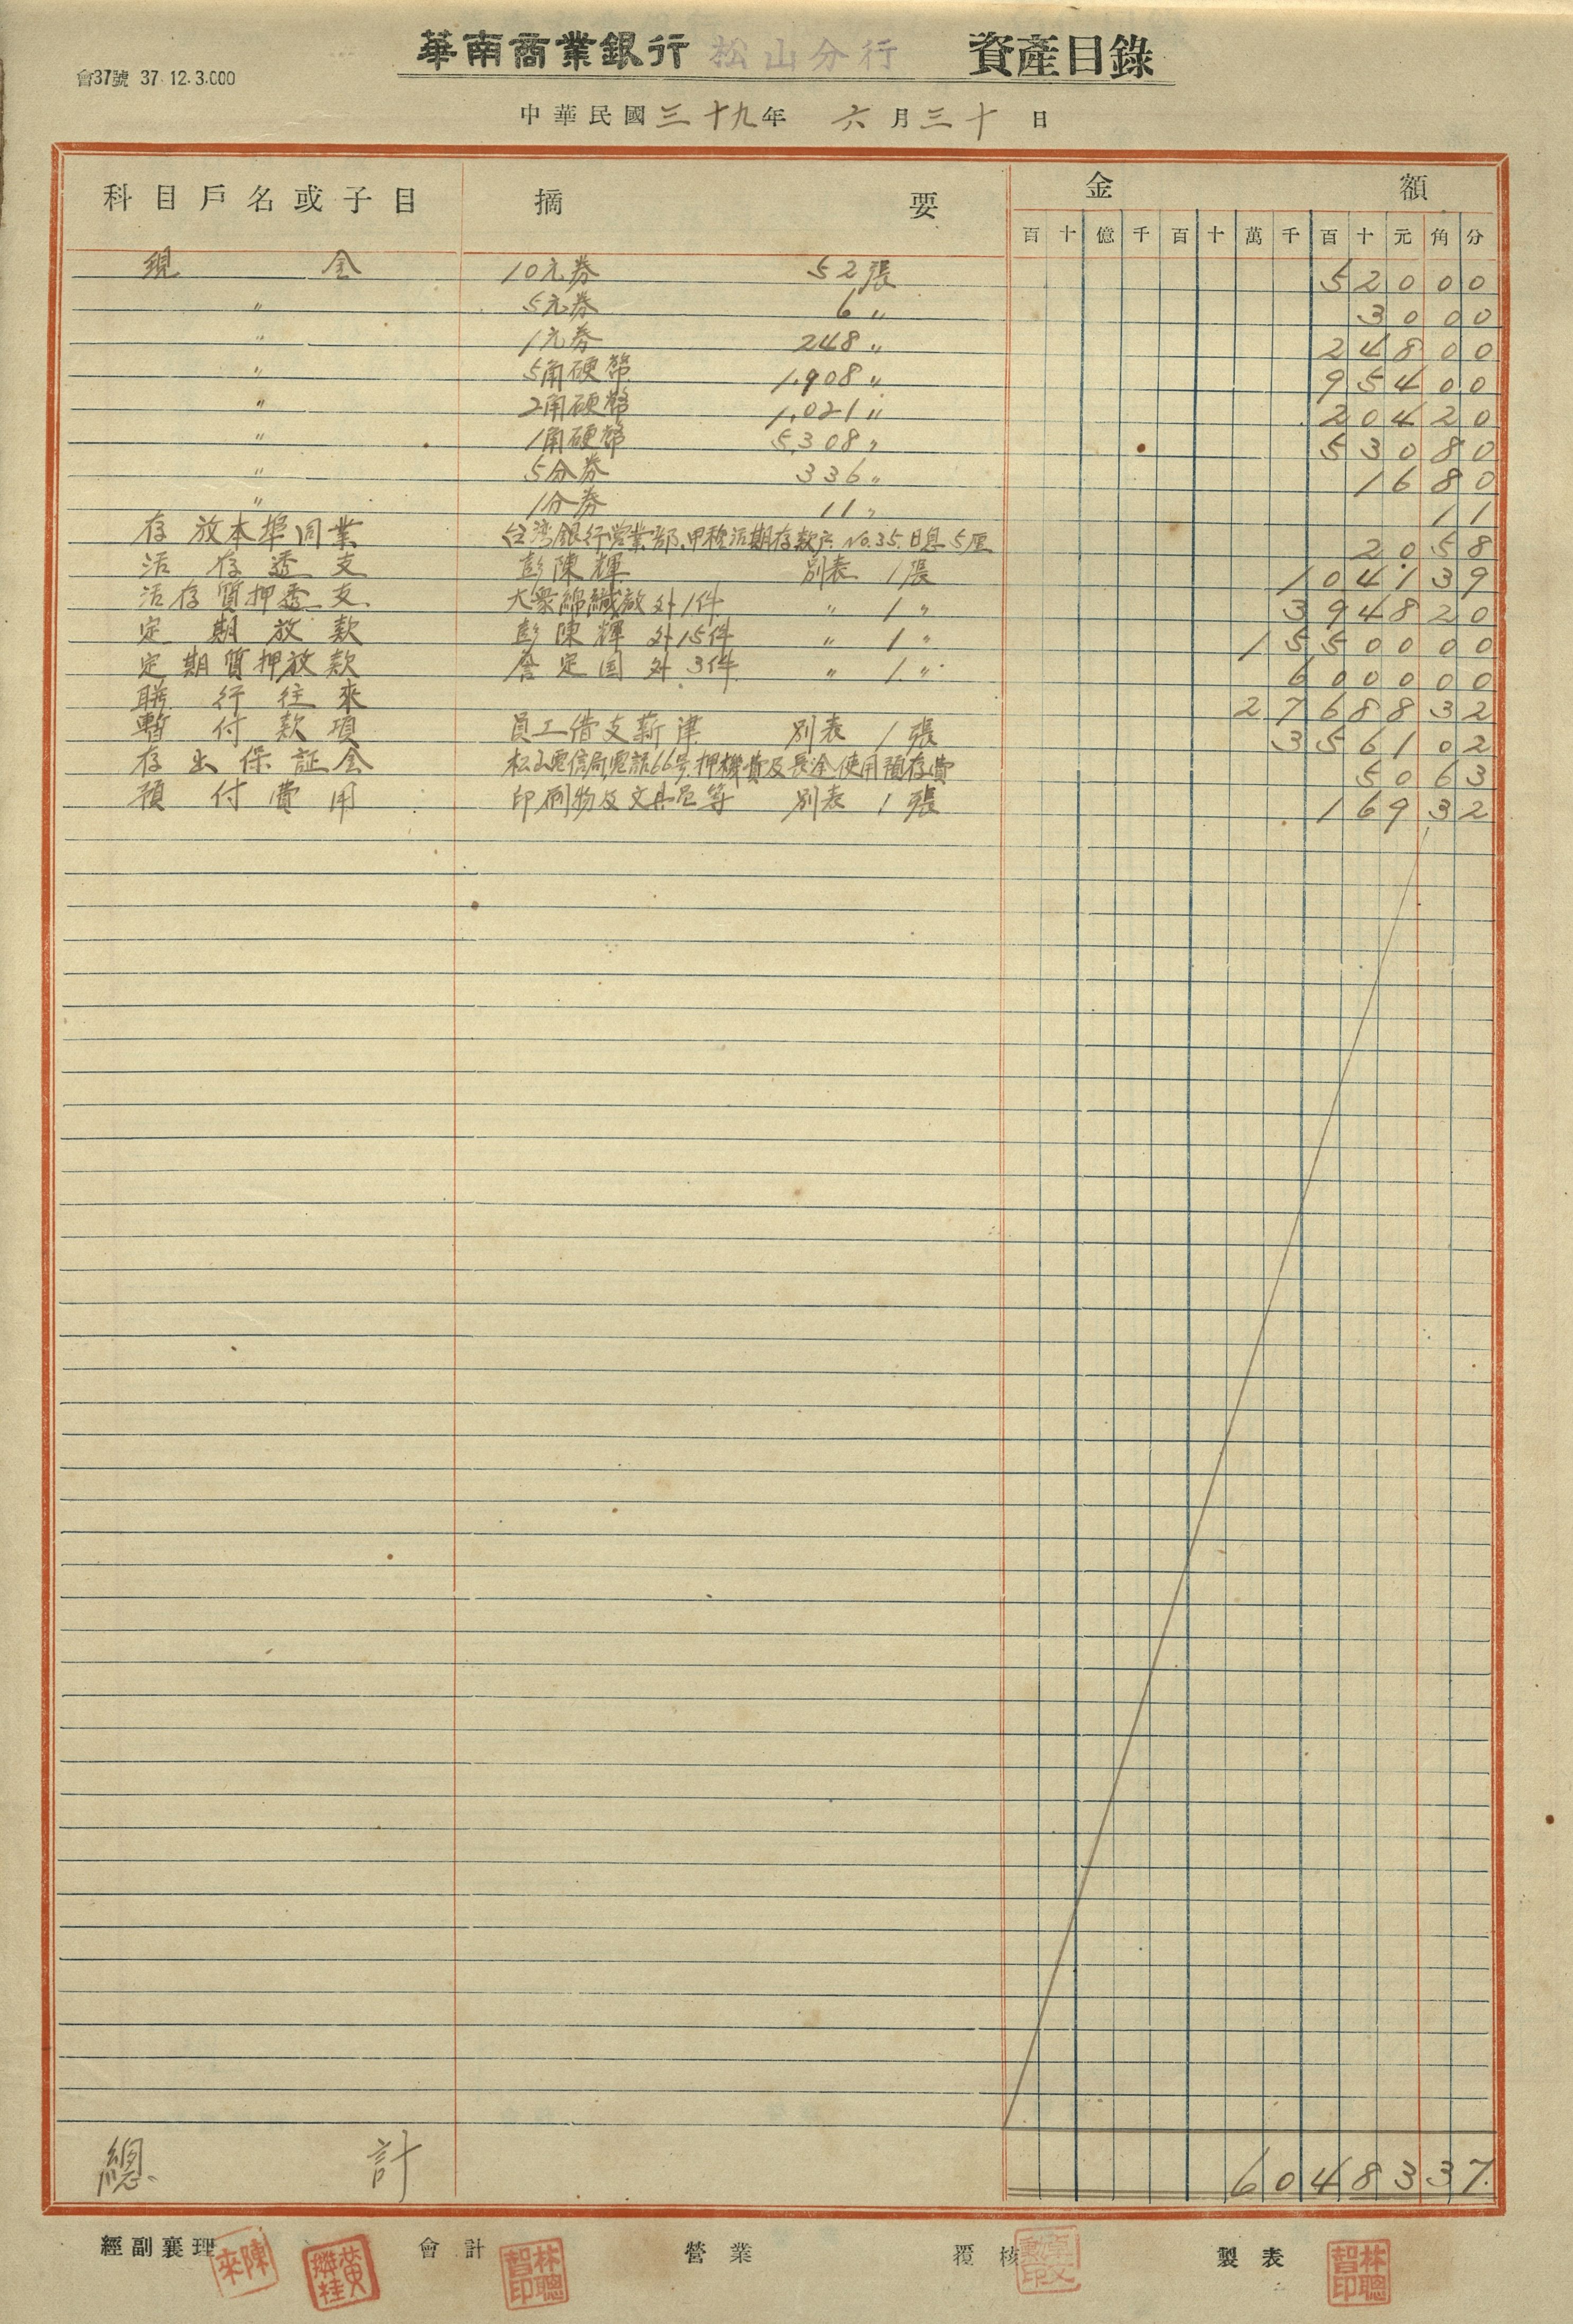 華南商業銀行 松山分行 資產目錄
會37號 37.12.3.000
中華民國三十九年 六月三十日
科目戶名或子目 摘要 金額
百十億千百十萬千百十元角分
現金 10元券 52張 52000
〃 5元券 6〃 3000
〃 1元券 248〃 24800
〃 5角硬幣 1,908〃 95400
〃 2角硬幣 1,021〃 20420
〃 1角硬幣 5,308〃 53080
〃 5分券 336〃 1680
〃 1分券 11〃 11
存放本埠同業 台湾銀行営業部、甲種活期存款户 No.35. 日息5厘 2058
活存透支 彭陳輝 別表 1張 104139
活存質押透支 大衆綿織廠外1件 〃 1〃 394820
定期放款 彭陳輝外15件 〃 1〃 1550000
定期質押放款 詹定国外3件 〃 1〃 600000
聯行往來 2768832
暫付款項 員工借支薪津 別表 1張 356102
存出保証金 松山電信局電話66号押機費及長途使用預存費 5063
預付費用 印刷物及文具等 別表 1張 16932
總計 6048337
經副襄理 會計 營業 覆核 製表
陳來
黃聯桂
林聰智印
林聰智印